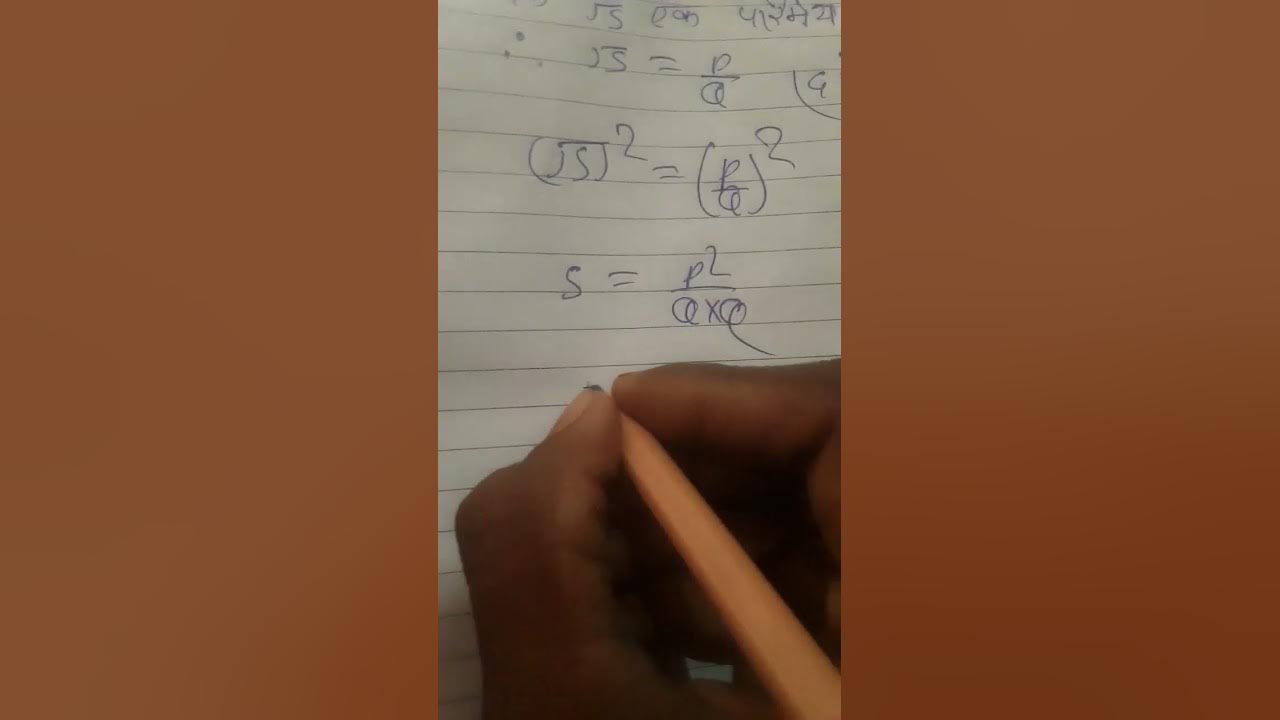 √5 एक परिमेय
∴ √5 = P/Q (q
(√5)² = (P/Q)²
5 = P²/Q×Q